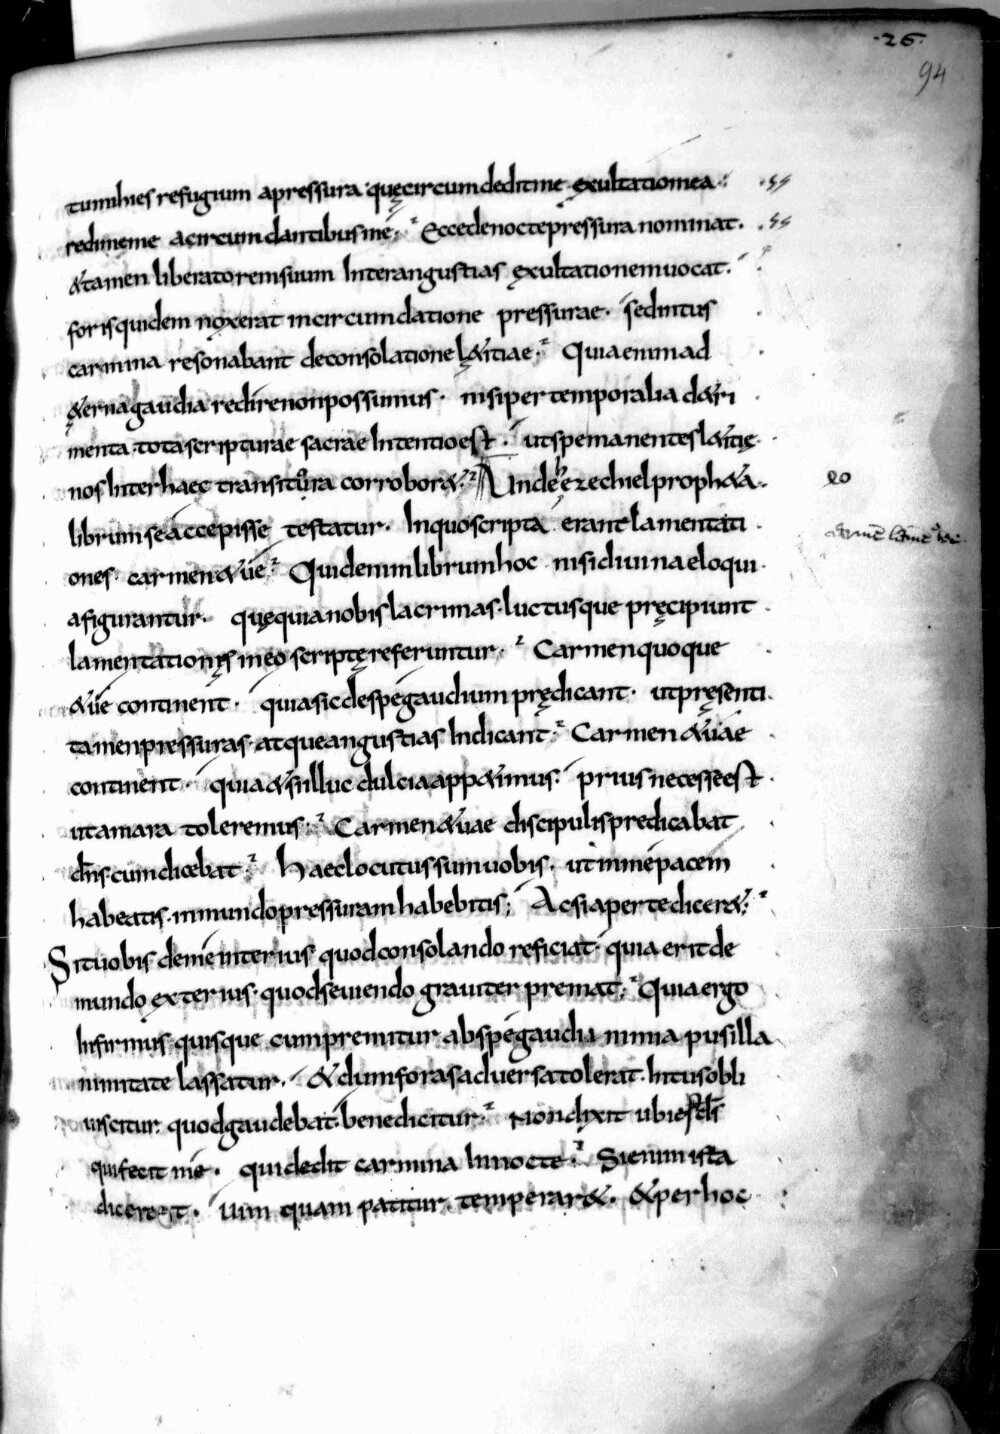 ·26·
94
tu mihi es refugium a pressura quę circumdedit me exultatio mea
redime me a circumdantibus me. Ecce de nocte pressura nominat.
& tamen liberatorem suum Inter angustias ęxultationem uocat.
foris quidem nox erat in circumdatione pressurae. sed intus
carmina resonabant de consolatione lętitiae. Quia enim ad
ęterna gaudia redire non possumus. nisi per temporalia d&ri
menta. tota scripturae sacrae Intentio est. ut spe manentes l&itię
nos Inter haec transitura corrobor&. Unde & ezechiel proph&a.
librum se accepisse testatur. In quo scripta erant lamentati
ones. carmen & uę. Quid enim librum hoc nisi diuina eloqui
a figurantur. quę quia nobis lacrimas. luctusque pręcipiunt
lamentationis in eo scriptę referuntur. Carmen quoque
& uę continent. quia sic de spe gaudium prędicant. ut pręsenti
tamen pressuras. atque angustias Indicant. Carmen & uae
continent. quia & si illuc dulcia app&imus. prius necesse est
ut amara toleremus. Carmen & uae discipulis predicabat
dn̄s cum dicebat. Haec locutus sum uobis. ut in me pacem
habeatis. in mundo pressuram habebitis; Ac si aperte dicer&;
Sit uobis de me interius quod consolando reficiat. quia erit de
mundo exterius. quod seuiendo grauiter premat. Quia ergo
Infirmus quisque cum premitur ab spe gaudii nimia pusilla
nimitate lassatur. & dum foras aduersa tolerat. Intus obli
uiscitur quod gaudebat. benedicitur. Non dixit ubi est d̄s
qui fecit me. qui dedit carmina In nocte. Si enim ista
dicerent. uim quam patitur temperar&. & per hoc